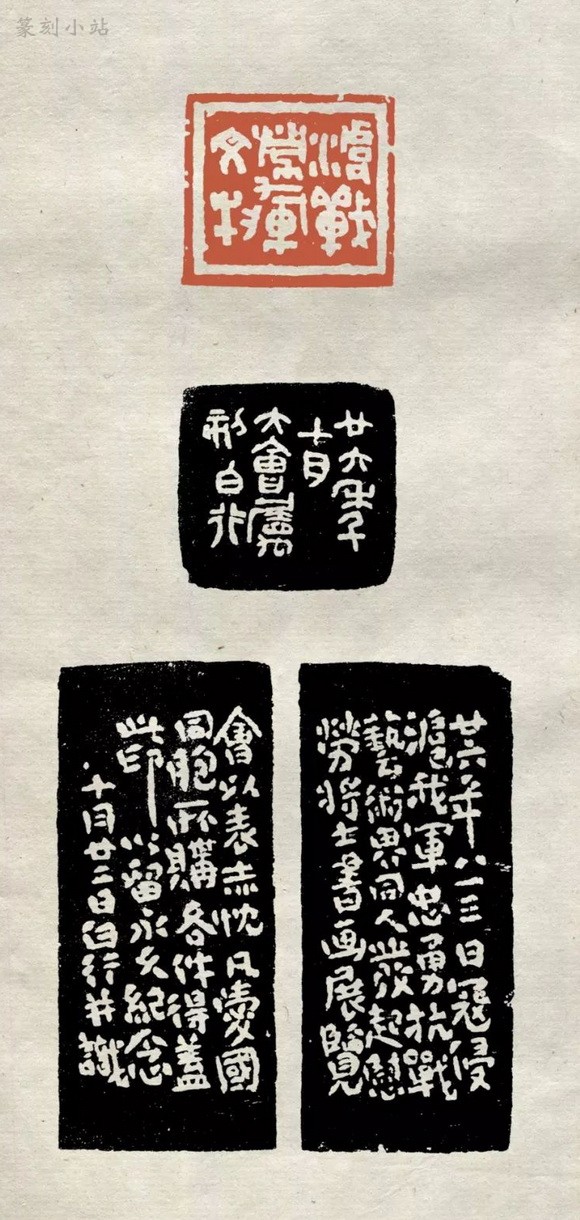 篆刻小站
滬戰
勞軍
文物
廿六年
十月
大會屬
制白行
廿六年八一三日寇侵
滬我軍忠勇抗戰
藝術界同人發起慰
勞將士書画展覽
會以表赤忱凡愛國
同胞所購各件得蓋
此印以留永久紀念
十月廿二日白行并識